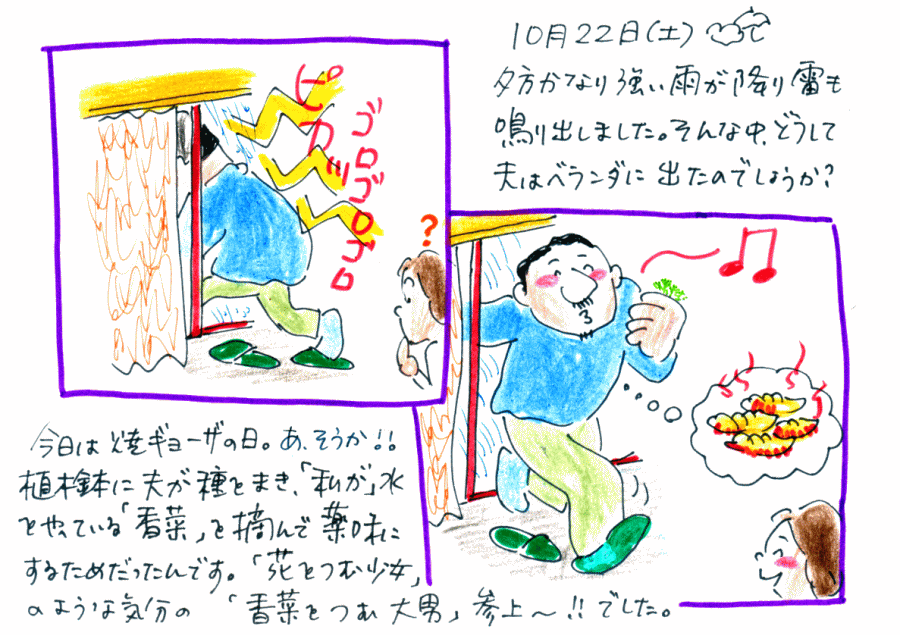 10月22日(土)
夕方かなり強い雨が降り雷も
鳴り出しました。そんな中、どうして
夫はベランダに出たのでしょうか?
ピカッ
ゴロゴロゴロ
?
今日は焼ギョーザの日。あ、そうか!!
植木鉢に夫が種をまき、「私が」水
をやっている「香菜」を摘んで薬味に
するためだったんです。「花をつむ少女」
のような気分の 「香菜をつむ大男」参上〜!!でした。